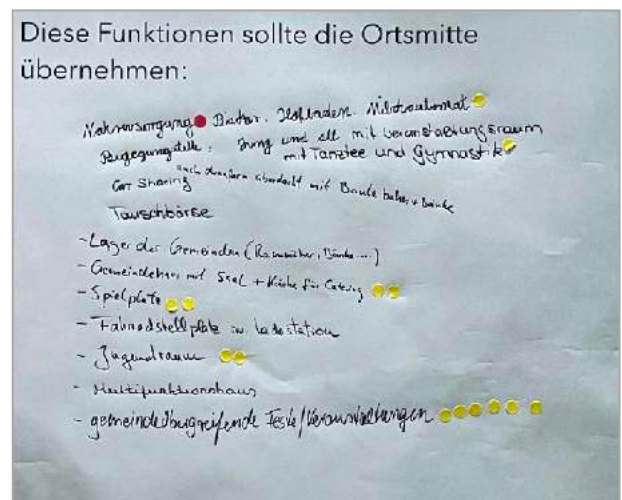 Diese Funktionen sollte die Ortsmitte
übernehmen:
Nahversorgung Bäcker. Hofladen. Milchautomat
Begegnungstelle: Jung und alt mit Veranstaltungsraum
mit Tanztee und Gymnastik
auch draußen überdacht mit Baute
Car Sharing
Tauschbörse
- Lager der Gemeinden (Rasenmäher, Bänke ...)
- Gemeindehaus mit Saal + Küche für Catering
- Spielplatz
- Fahrradstellplatz Ladestation
- Jugendraum
- Multifunktionshaus
- gemeindeübergreifende Feste/Veranstaltungen